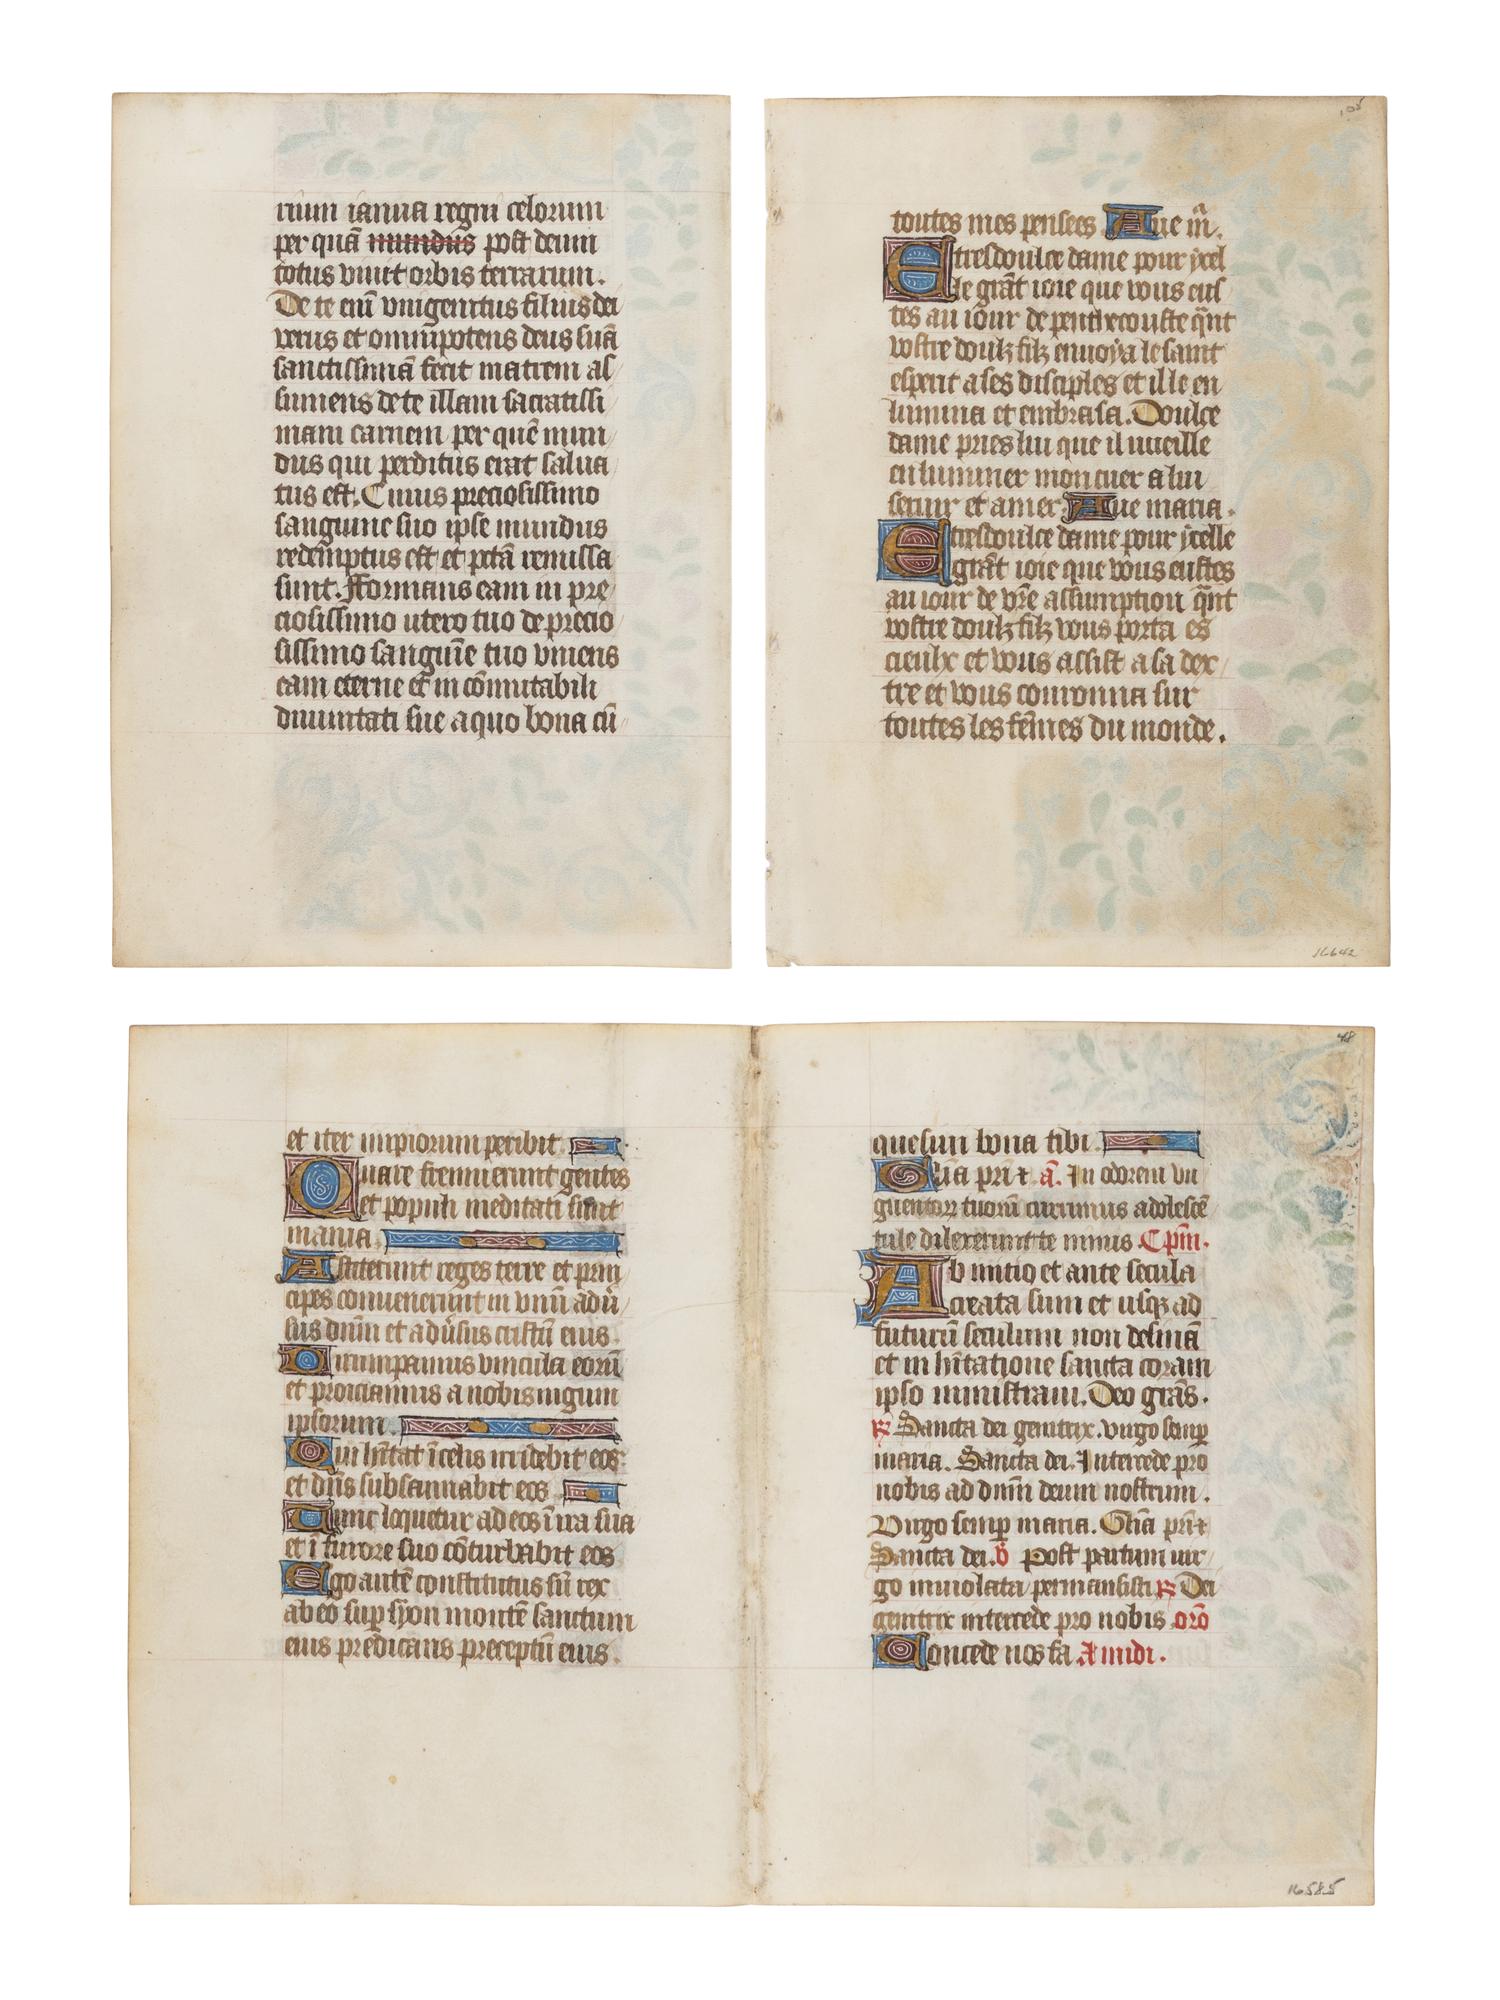 rium ianua regni celorum
per quā mundus post deum
totus viuit orbis terrarum.
De te eni vnigenitus filius dei
verus et omnipotens deus suā
sanctissimā fecit matrem as
sumens de te illam sacratissi
mam carnem per quē mun
dus qui perditus erat salua
tus est. Cuius preciosissimo
sanguine suo ipse mundus
redēptus est et pctā remissa
sunt. Fformans eam in pre
ciosissimo utero tuo de precio
sissimo sanguīe tuo vniens
eam eterne et in cōmutabili
diuinitati sue a quo bona cū
105
toutes mes pensees Aue m̄.
E tresdoulce dame pour ycel
le grāt ioie que vous eus
tes au iour de penthecouste qn̄t
vostre doulz filz enuoya le saint
esperit a ses disciples et il le en
lumina et embrasa. Doulce
dame pries lui que il uueille
enluminer mon cuer a lui
seruir et amer Aue maria.
E tresdoulce dame pour ycelle
grāt ioie que vous eustes
au iour de vr̄e assumption qn̄t
vostre doulz filz vous porta es
cieulx et vous assist a sa dex
tre et vous couronna sur
toutes les fēmes du monde.
16642
et iter impiorum peribit.
Quare fremuerunt gentes
et populi meditati sunt
inania.
Astiterunt reges terre et prin
cipes conuenerunt in vnū adū
sus dn̄m et adūsus cristū eius.
Dirumpamus vincula eorū
et proiciamus a nobis iugum
ipsorum.
Qui hītat ī celis irridebit eos
et dn̄s subsannabit eos
Tunc loquetur ad eos ī ira sua
et ī furore suo cōturbabit eos
Ego autē constitutus sū rex
ab eo sup syon montē sanctum
eius predicans preceptū eius.
48
quesun bona tibi.
Glīa pr̄i et a. In odorem vn
guentorꝝ tuorū currimus adolescē
tule dilexerunt te nimis Cpm̄.
Ab initio et ante secula
creata sum et usqꝫ ad
futurū seculum non desinā
et in hītatione sancta coram
ipso ministraui. Deo grās.
R Sancta dei genitrix. virgo semp
maria. Sancta dei. Intercede pro
nobis ad dn̄m deum nostrum.
Virgo semp maria. Glīa pr̄i et
Sancta dei. v̄ Post partum uir
go inuiolata permansisti R Dei
genitrix intercede pro nobis orō
Concede nos fa A midi.
16585